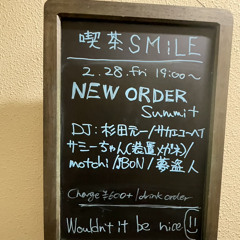 喫茶SMiLE
2.28.fri 19:00〜
NEW ORDER
Summit
DJ:杉田元一/サカエコーヘイ
サミーちゃん(装置メガネ)/
motchi/JBON/夢盗人
Charge ¥600+/drink order
Wouldn't it be nice